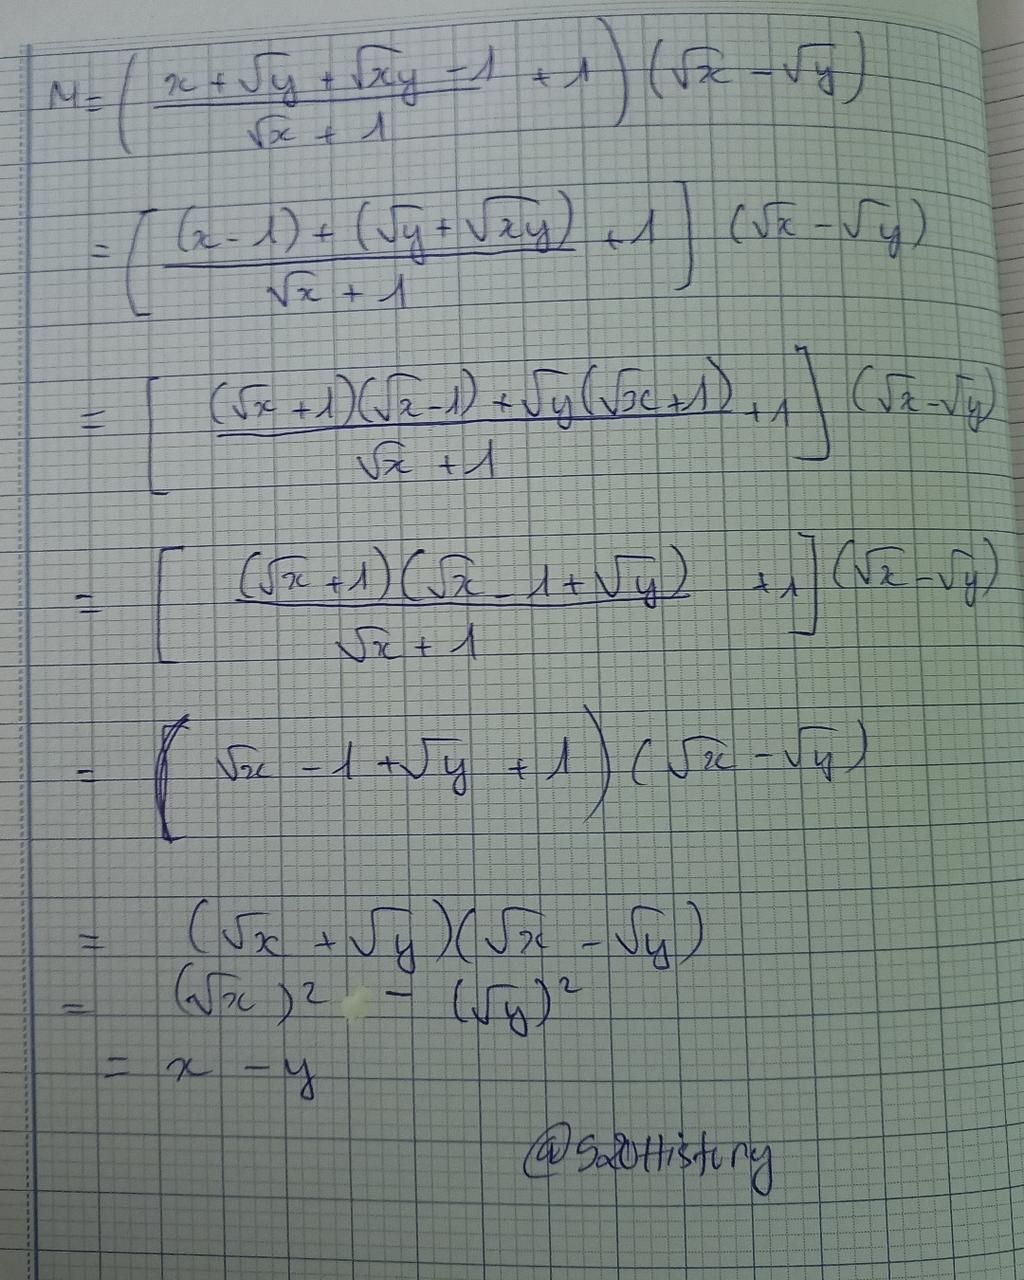 M = ( (x + √y + √xy − 1)/(√x + 1) + 1 ) (√x − √y)
= [ ((x − 1) + (√y + √xy))/(√x + 1) + 1 ] (√x − √y)
= [ ((√x + 1)(√x − 1) + √y(√x + 1))/(√x + 1) + 1 ] (√x − √y)
= [ ((√x + 1)(√x − 1 + √y))/(√x + 1) + 1 ] (√x − √y)
= ( √x − 1 + √y + 1 ) (√x − √y)
= (√x + √y)(√x − √y)
= (√x)² − (√y)²
= x − y